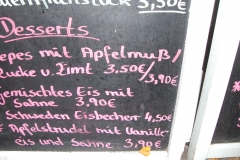 3,50€
Desserts
epes mit Apfelmuß/
Zucke u. Zimt 3,50€/3,90€
gemischtes Eis mit
Sahne 3,90€
Schweden Eisbecher 4,50€
Apfelstrudel mit Vanille-
eis und Sahne 3,90€